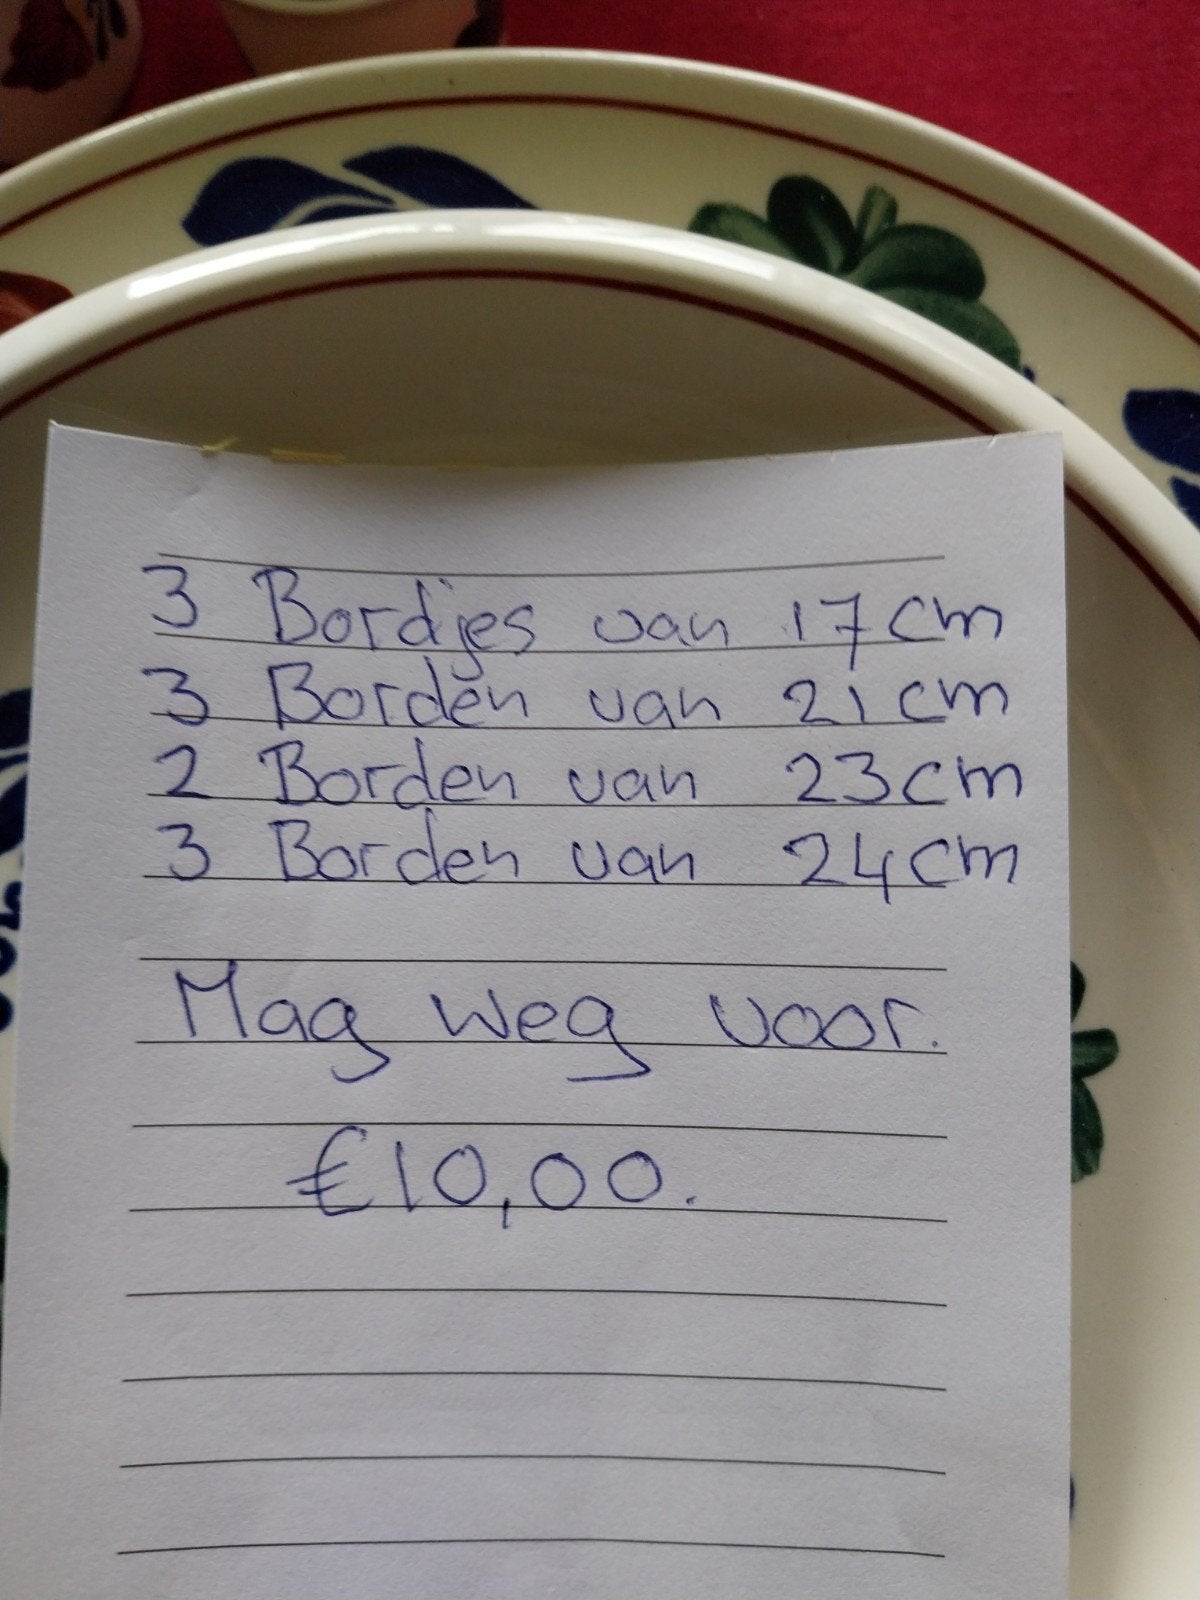 3 Bordjes van 17 cm
3 Borden van 21 cm
2 Borden van 23 cm
3 Borden van 24 cm
Mag weg voor.
€10,00.